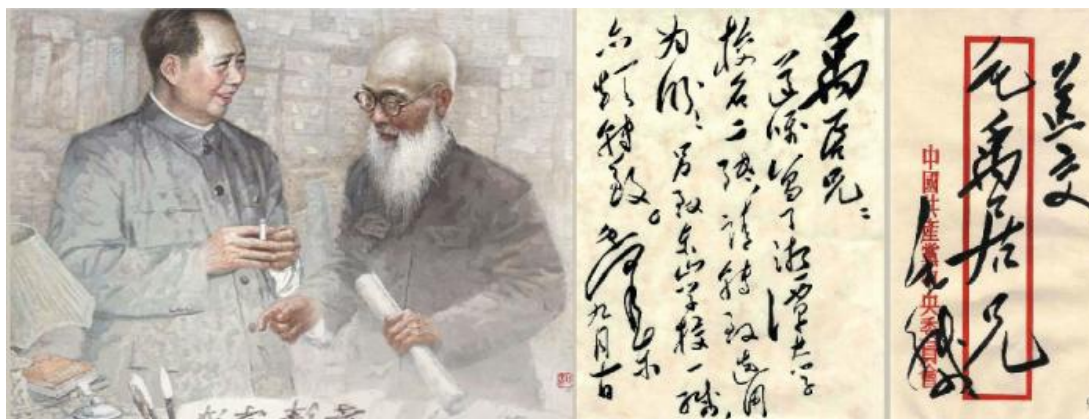 禹居兄：
遵嘱写了湘潭大学
校名二张，请转致选用
为盼。另致东山学校一缄
亦烦转致。毛泽东
九月十日
交
毛禹居兄
中國共產黨中央委員會